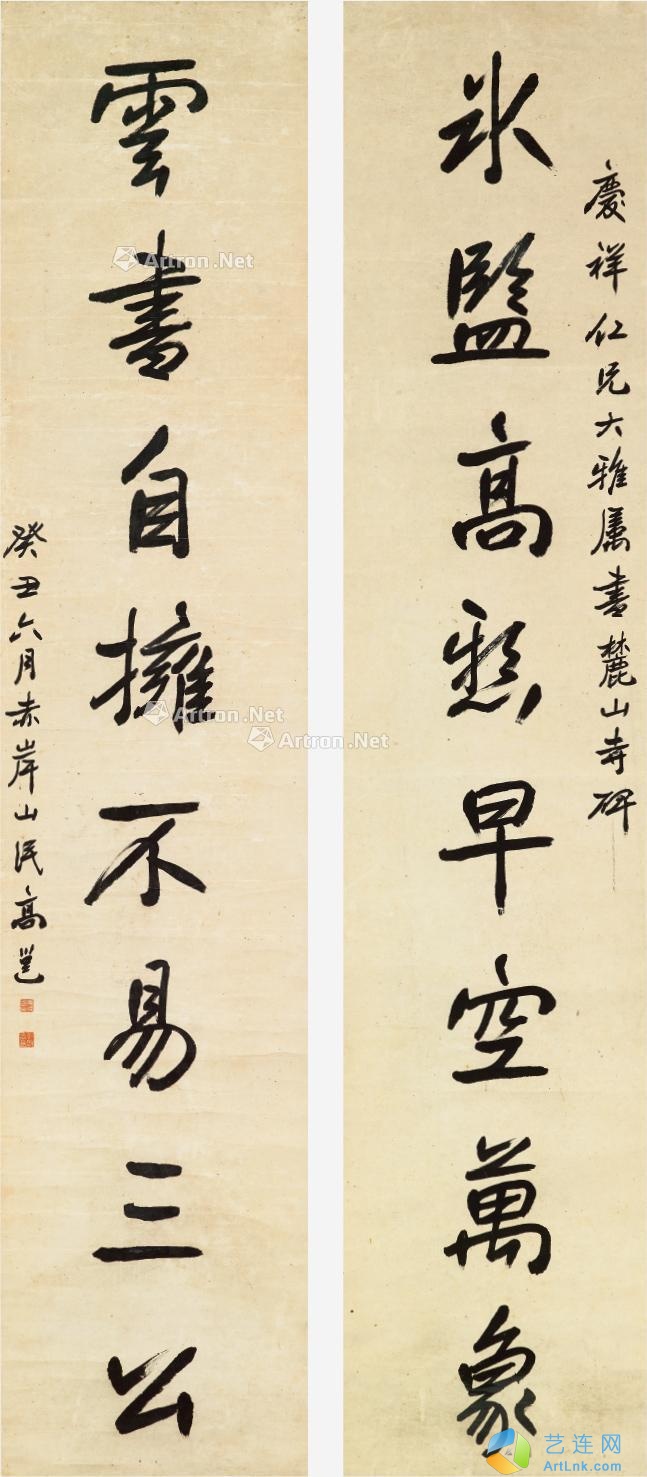 慶祥仁兄大雅属書麓山寺碑
氷監高懸早空萬象
雲書自擁不易三公
癸丑六月赤岸山民高邕
Artron.Net
Artron.Net
Artron.Net
艺连网
ArtLnk.com